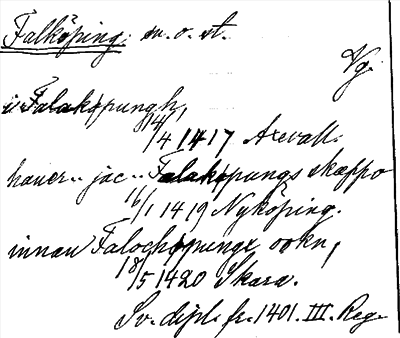 Falköping, m. o. st.
Vg.
i Falakøpungh,
14/4 1417 Axevall.
hauer .. jac .. Falakøpungs skæppo
16/1 1419 Nyköping.
innan Falochøpungx sokn,
18/5 1420 Skara.
Sv. dipl. fr. 1401. III. Reg.